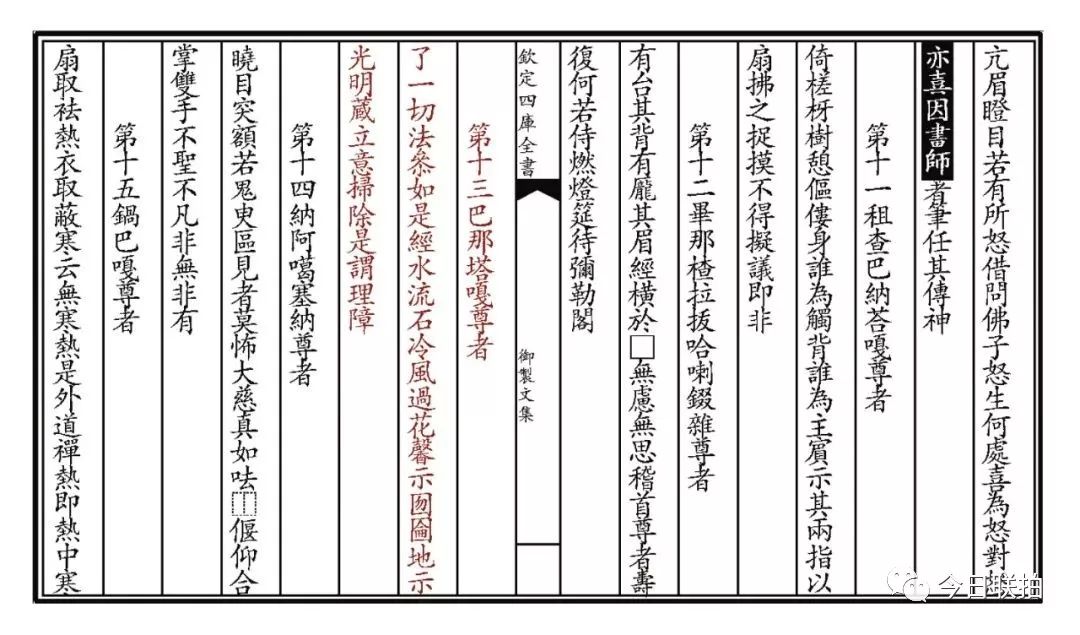 亢眉瞪目若有所怒借問佛子怒生何處喜為怒對
亦喜因畫師者筆任其傳神
第十一租查巴納荅嘎尊者
倚槎枒樹憩傴僂身誰為觸背誰為主賓示其兩指以
扇拂之捉摸不得擬議即非
第十二畢那楂拉拔哈喇錣雜尊者
有台其背有龐其眉經橫於□無慮無思稽首尊者壽
復何若侍燃燈筵待彌勒閣
欽定四庫全書
御製文集
第十三巴那塔嘎尊者
了一切法叅如是經水流石冷風過花馨示囫圇地示
光明蔵立意掃除是謂理障
第十四納阿噶塞納尊者
曉目突額若鬼臾區見者莫怖大慈真如呿偃仰合
掌雙手不聖不凡非無非有
第十五鍋巴嘎尊者
扇取袪熱衣取蔽寒云無寒熱是外道禪熱即熱中寒
今日联拍